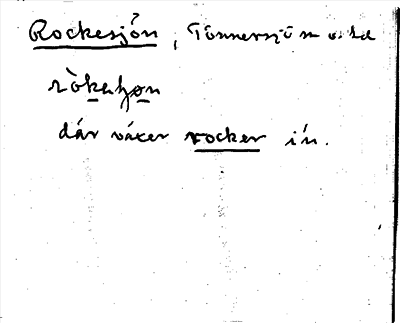 Rockesjön, Tönnersjö m o. hd
ròkaʃɷn
där växer rocker in.